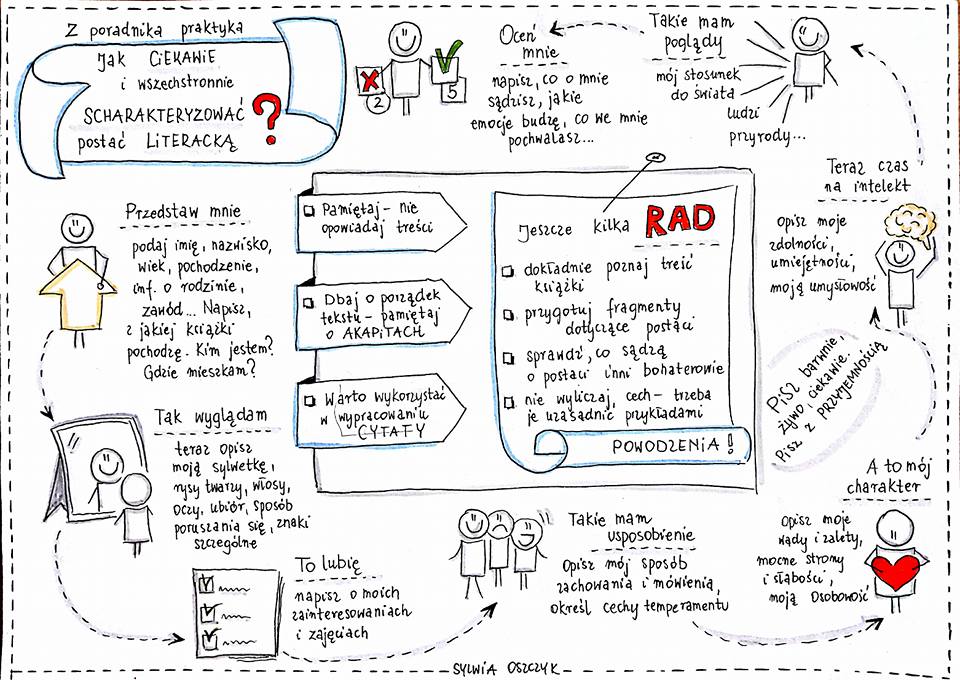 Z poradnika praktyka
Jak CIEKAWIE
i wszechstronnie
SCHARAKTERYZOWAĆ
postać LITERACKĄ
?
2
5
Oceń
mnie
napisz, co o mnie
sądzisz, jakie
emocje budzę, co we mnie
pochwalasz...
Takie mam
poglądy
mój stosunek
do świata
ludzi
przyrody...
Teraz czas
na intelekt
opisz moje
zdolności,
umiejętności,
moją umysłowość
Przedstaw mnie
podaj imię, nazwisko,
wiek, pochodzenie,
inf. o rodzinie,
zawód... Napisz,
z jakiej książki
pochodzę. Kim jestem?
Gdzie mieszkam?
Pamiętaj - nie
opowiadaj treści
Dbaj o porządek
tekstu - pamiętaj
o AKAPITACH
Warto wykorzystać
w wypracowaniu
CYTATY
Jeszcze kilka RAD
dokładnie poznaj treść
książki
przygotuj fragmenty
dotyczące postaci
sprawdź, co sądzą
o postaci inni bohaterowie
nie wyliczaj, cech - trzeba
je uzasadnić przykładami
POWODZENIA!
Pisz barwnie,
żywo, ciekawie.
Pisz z PRZYJEMNOŚCIĄ
Tak wyglądam
teraz opisz
moją sylwetkę,
rysy twarzy, włosy,
oczy, ubiór, sposób
poruszania się, znaki
szczególne
To lubię
napisz o moich
zainteresowaniach
i zajęciach
Takie mam
usposobienie
Opisz mój sposób
zachowania i mówienia,
określ cechy temperamentu
A to mój
charakter
Opisz moje
wady i zalety,
mocne strony
i słabości,
moją osobowość
SYLWIA OSZCZYK